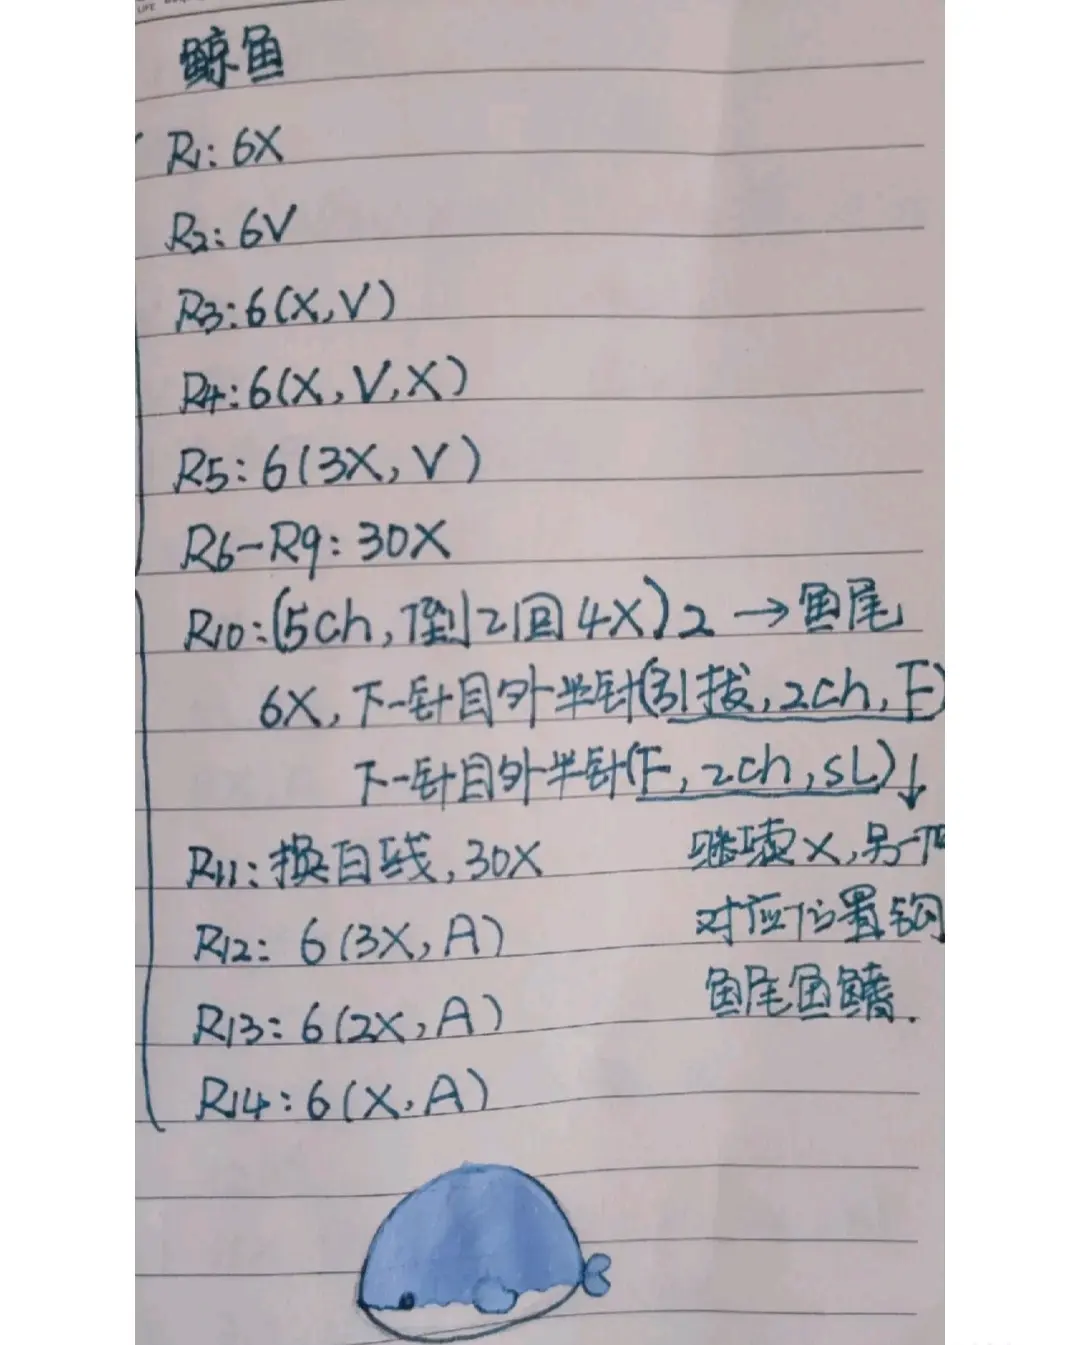 LIFE
鲸鱼
R1: 6X
R2: 6V
R3: 6(X, V)
R4: 6(X, V, X)
R5: 6(3X, V)
R6-R9: 30X
R10: (5ch, 倒2回4X)2 → 鱼尾
6X, 下一针目外半针(引拔, 2ch, F)
下一针目外半针(F, 2ch, SL)↓
R11: 换白线, 30X
继续X, 另一
R12: 6(3X, A)
对应位置钩
R13: 6(2X, A)
鱼尾鱼鳍.
R14: 6(X, A)